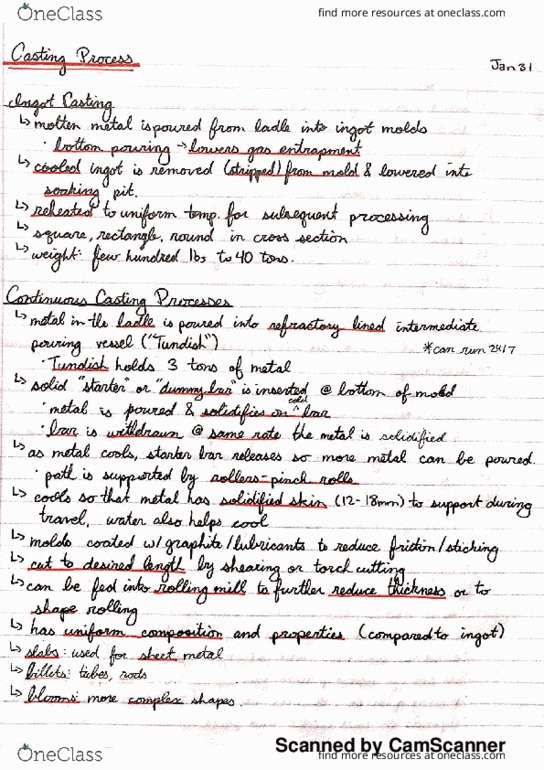 OneClass
find more resources at oneclass.com
Casting Process
Jan 31
Ingot Casting
↳ molten metal is poured from ladle into ingot molds
· bottom pouring → lowers gas entrapment
↳ cooled ingot is removed (stripped) from mold & lowered into
soaking pit.
↳ reheated to uniform temp. for subsequent processing
↳ square, rectangle, round in cross section
↳ weight: few hundred lbs to 40 tons.
Continuous Casting Processes
↳ metal in the ladle is poured into refractory lined intermediate
pouring vessel ("Tundish")
*can run 24/7
· Tundish holds 3 tons of metal
↳ solid "starter" or "dummy bar" is inserted @ bottom of mold
· metal is poured & solidifies on cold bar
· bar is withdrawn @ same rate the metal is solidified
↳ as metal cools, starter bar releases so more metal can be poured
· path is supported by rollers-pinch rolls
↳ cools so that metal has solidified skin (12-18mm) to support during
travel, water also helps cool
↳ molds coated w/ graphite/lubricants to reduce friction/sticking
↳ cut to desired length by shearing or torch cutting
↳ can be fed into rolling mill to further reduce thickness or to
shape rolling
↳ has uniform composition and properties (compared to ingot)
↳ slabs: used for sheet metal
↳ billets: tubes, rods
↳ blooms: more complex shapes.
Scanned by CamScanner
OneClass
find more resources at oneclass.com